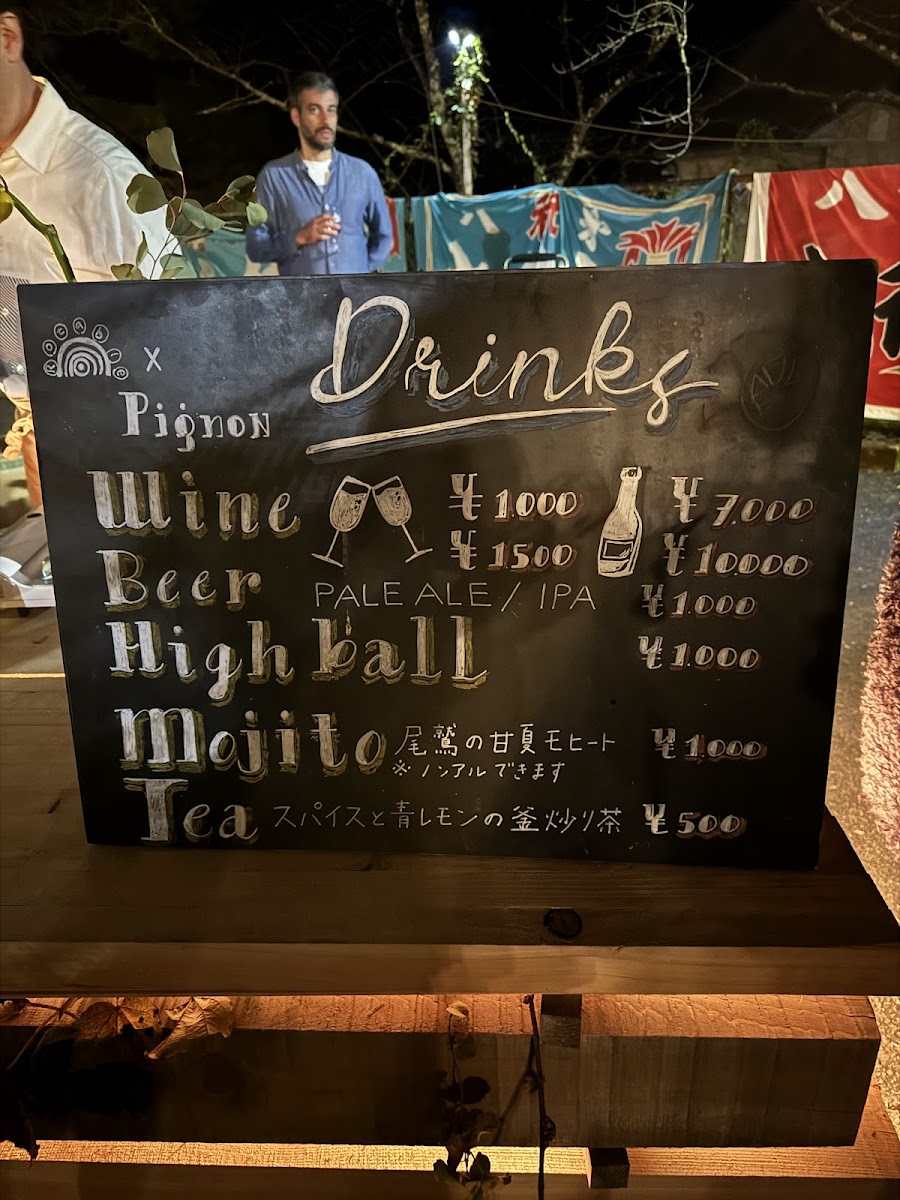 八
Kotabune
×
Pignon
Drinks
Wine ¥1.000 ¥7.000
¥1500 ¥10000
Beer PALE ALE / IPA ¥1.000
High ball ¥1.000
Mojito 尾鷲の甘夏モヒート ¥1,000
※ノンアルできます
Tea スパイスと青レモンの釜炒り茶 ¥500